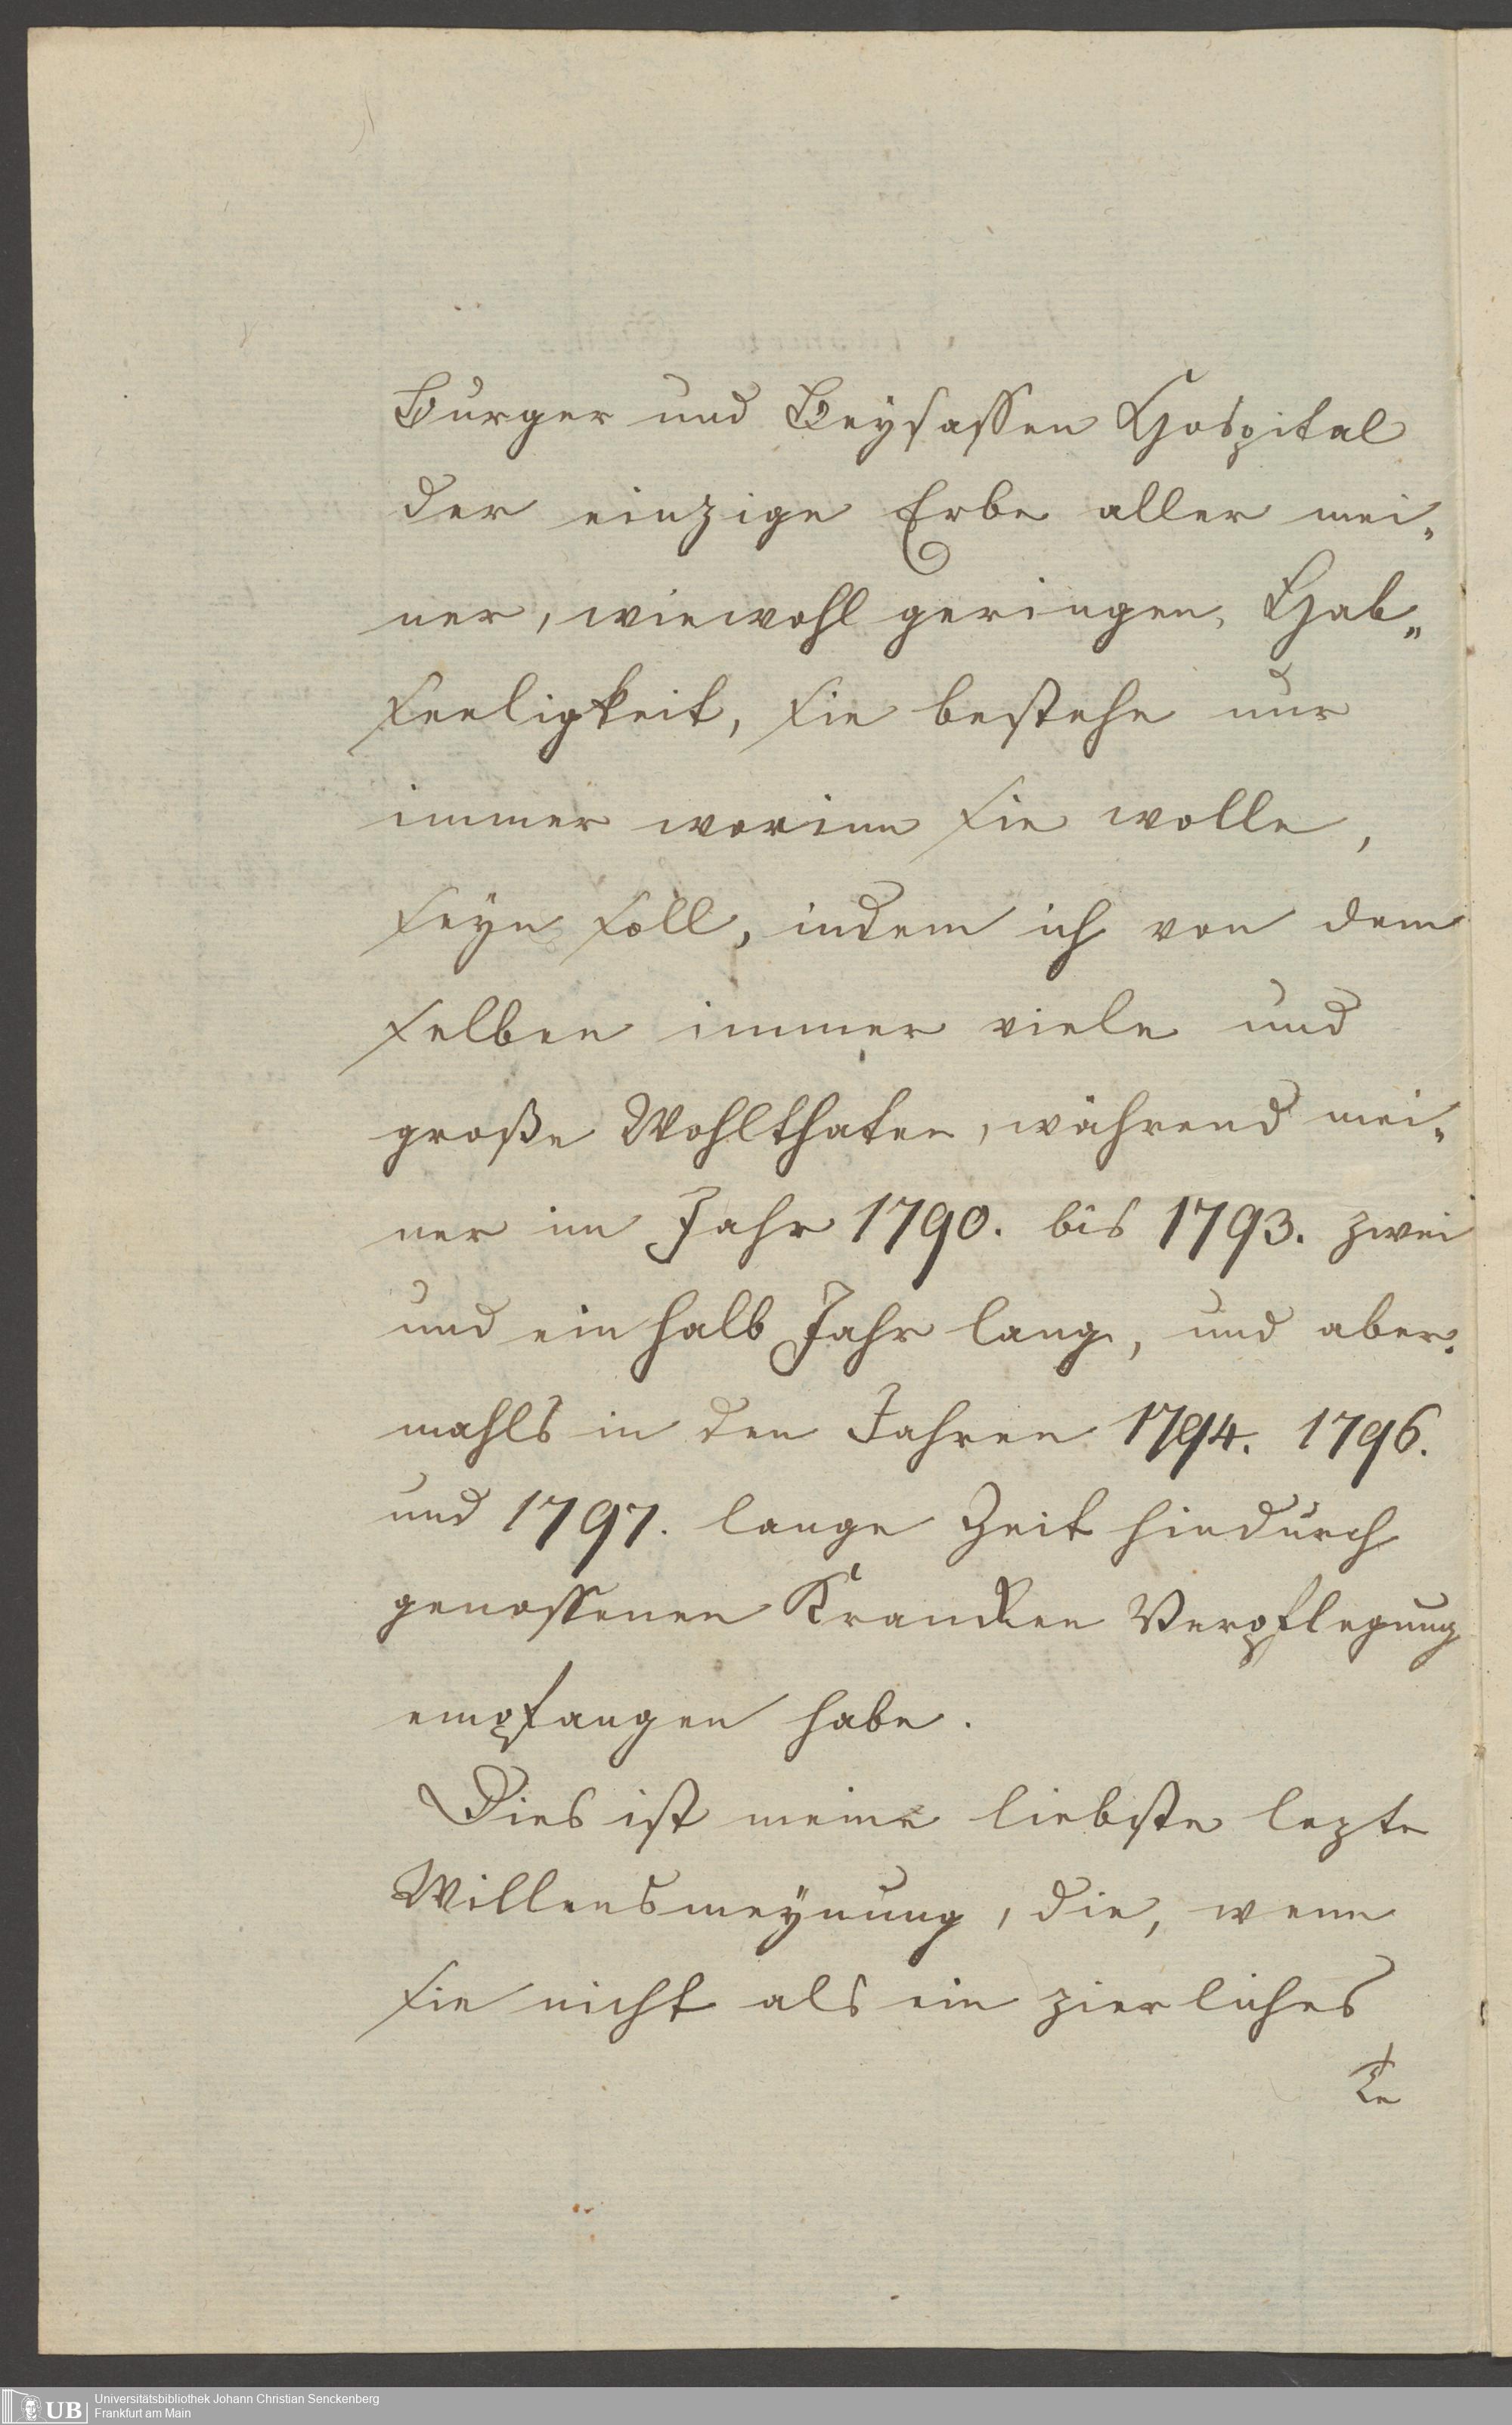 Burger und Beysassen Hospital
der einzige Erbe aller mei„
ner, wiewohl geringen, Hab„
seeligkeit, sie bestehe nur
immer worinn sie wolle,
seyn soll, indem ich von dem
selben immer viele und
große Wohlthaten, während mei„
ner im Jahr 1790. bis 1793. zwei
und ein halb Jahr lang, und aber„
mahls in den Jahren 1794. 1796.
und 1797. lange Zeit hindurch
genossenen Krancken Verpflegung
empfangen habe.
Dies ist meine liebste lezte
Willensmeynung, die, wenn
sie nicht als ein zierliches
Te
Universitätsbibliothek Johann Christian Senckenberg
Frankfurt am Main
UB